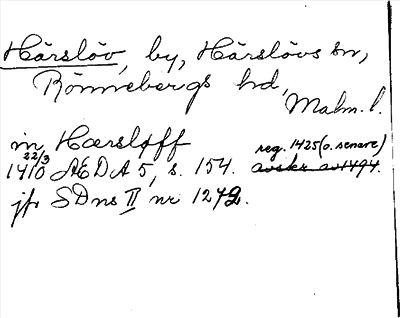 Härslöv, by, Härslövs sn,
Rönnebergs hd,
Malm. l.
in Hærsløff
1410 22/3 ÆDA 5, s. 154. reg. 1425 (o. senare) avskr. av 1494.
jfr SDns II nr 1272.